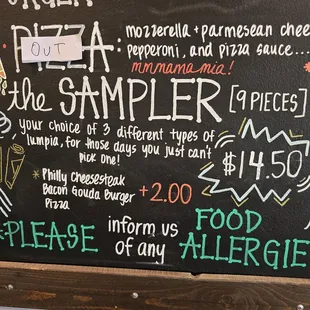 PIZZA: mozzerella + parmesean chee
OUT
pepperoni, and pizza sauce...
mmmama mia!
the SAMPLER [9 PIECES]
your choice of 3 different types of
lumpia, for those days you just can't
pick one!
$14.50
* Philly Cheesesteak
Bacon Gouda Burger +2.00
Pizza
*PLEASE inform us of any FOOD ALLERGIE